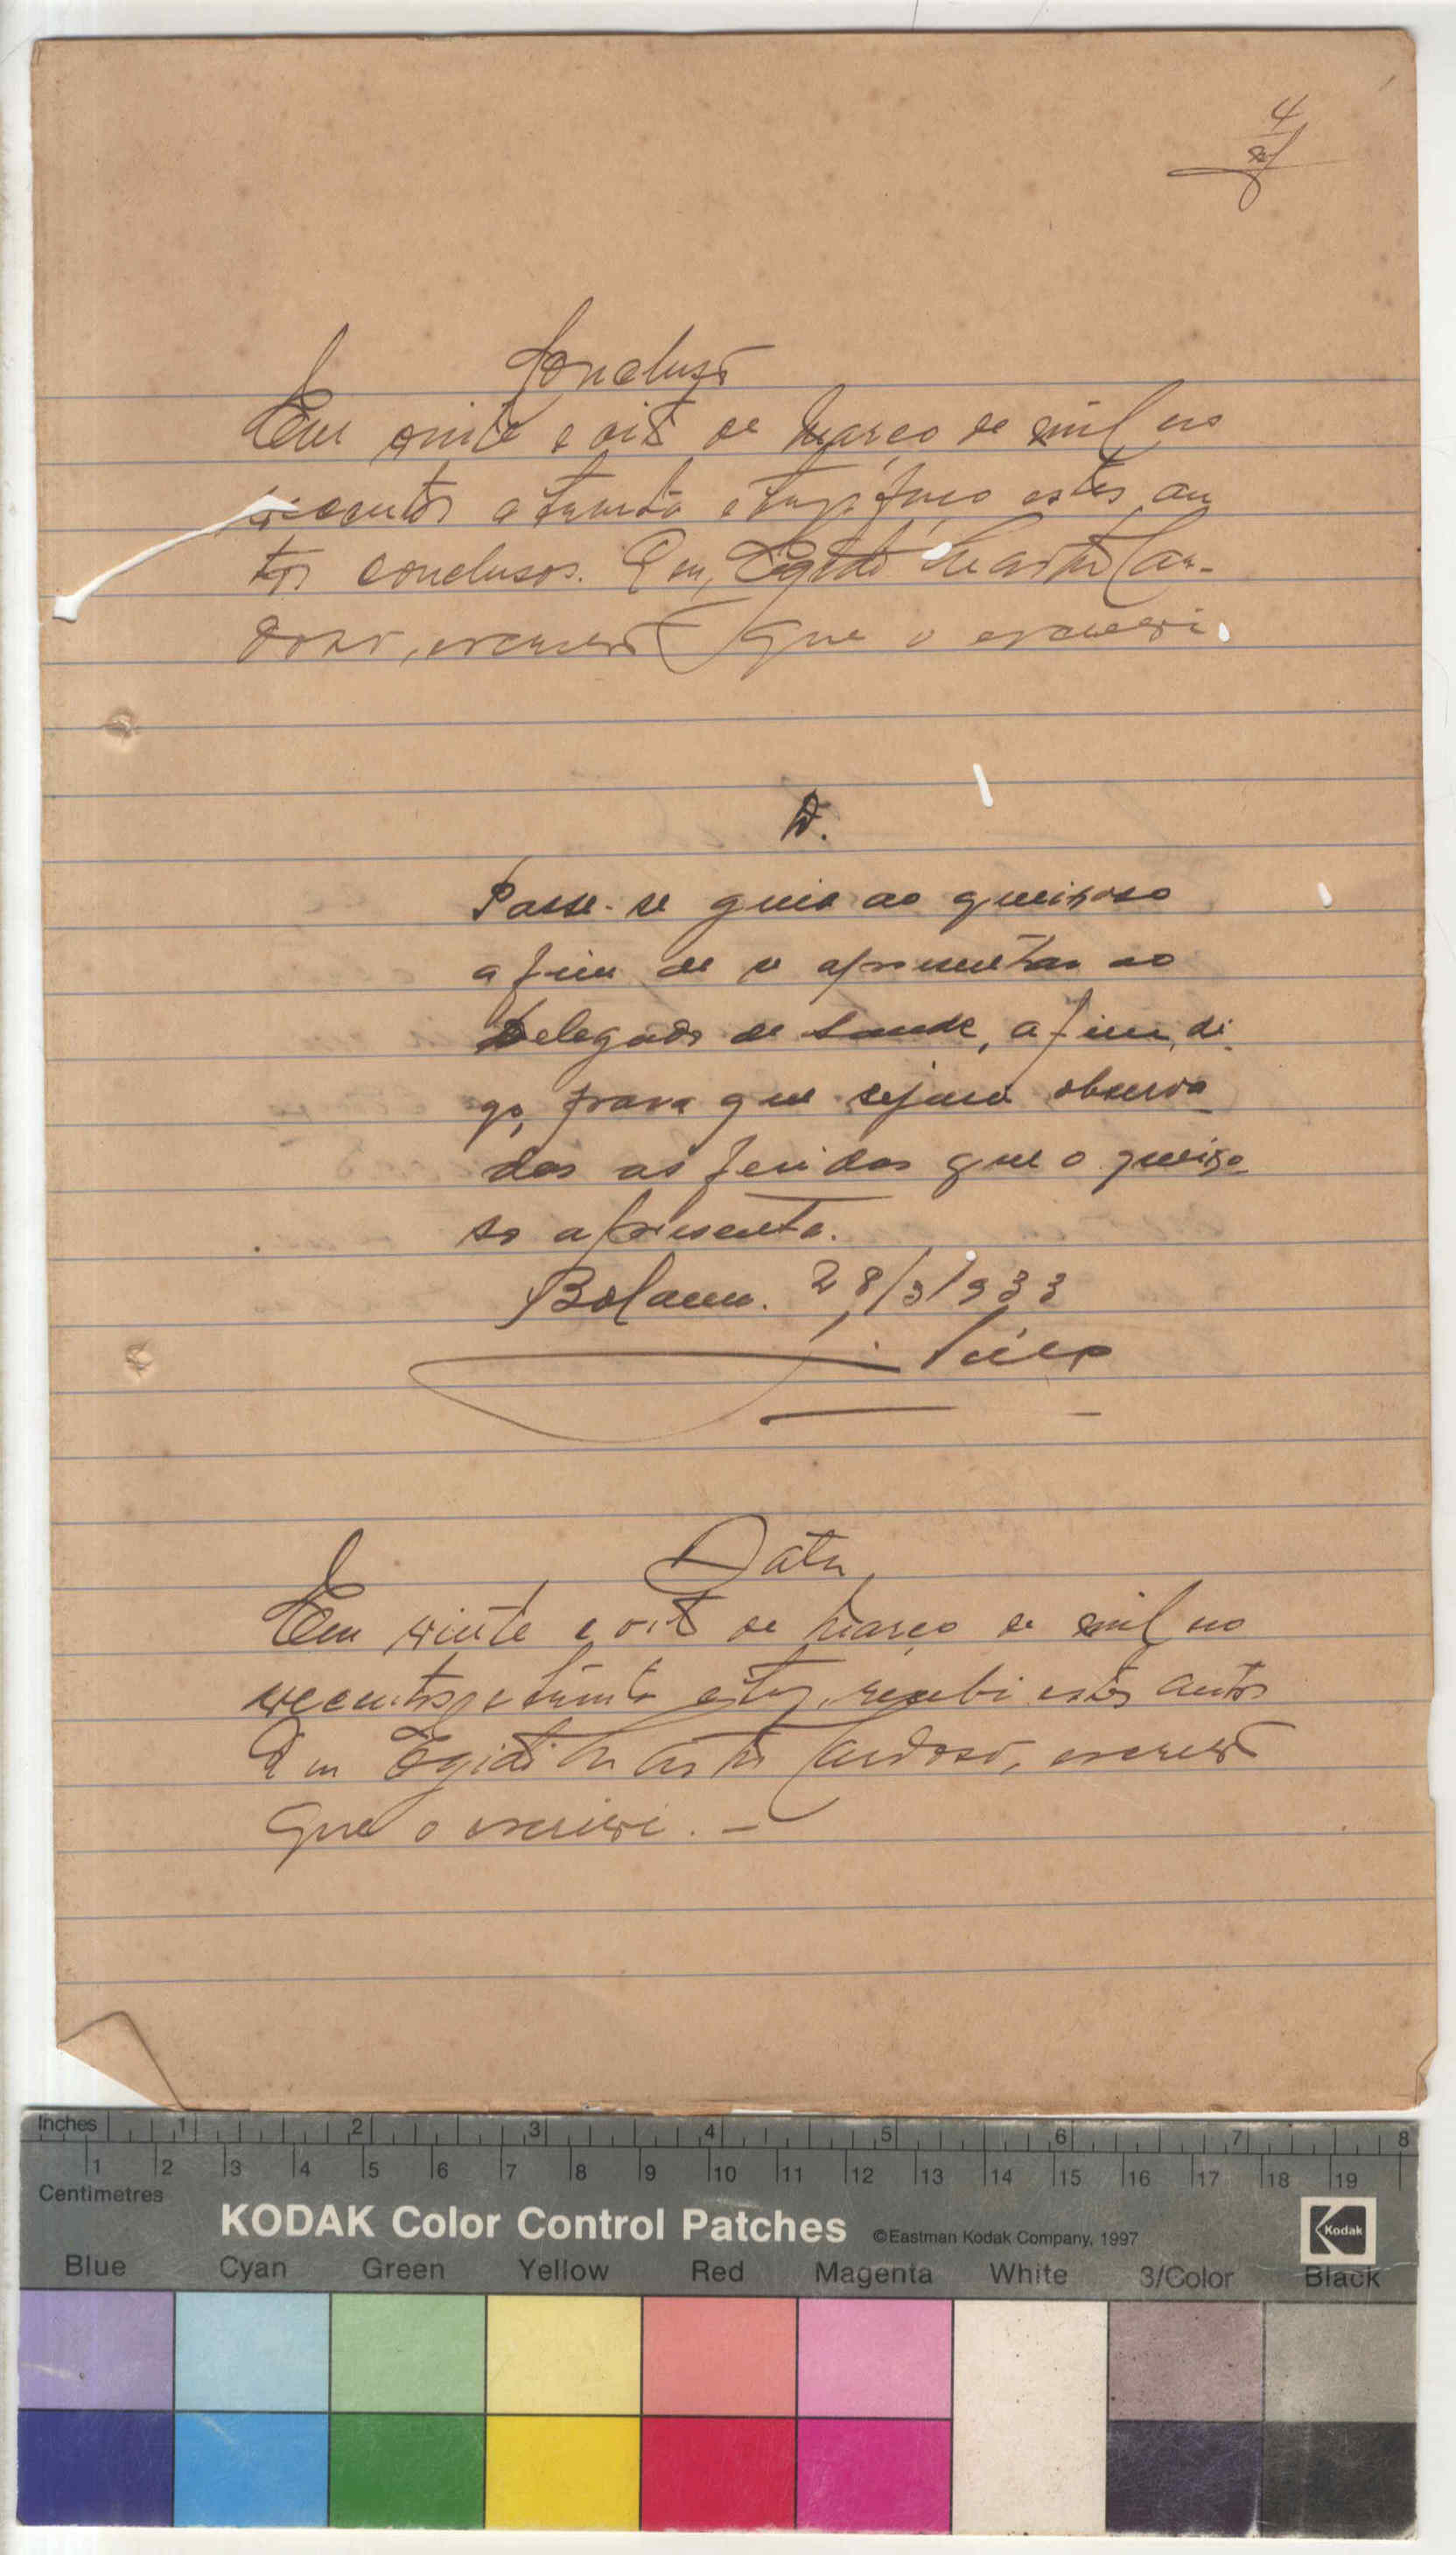 4
Conclusão
Em vinte e oito de Março de mil no
vecentos e trinta e tres, faço estes au
tos conclusos. Eu, Egidio Martins Car-
doso, escrivão que o escrevi.
D.
Passe-se guia ao queixoso
a fim de se apresentar ao
Delegado de Saude, a fim, di
go, para que sejam observa
das as feridas que o queixo
so apresenta.
Bolama. 28/3/933
Data
Em vinte e oito de Março de mil no
vecentos e trinta e tres, recebi estes autos
Eu Egidio Martins Cardoso, escrivão
que o escrevi. -
Inches 1 2 3 4 5 6 7 8
1 2 3 4 5 6 7 8 9 10 11 12 13 14 15 16 17 18 19
Centimetres
KODAK Color Control Patches ©Eastman Kodak Company, 1997 Kodak
Blue Cyan Green Yellow Red Magenta White 3/Color Black